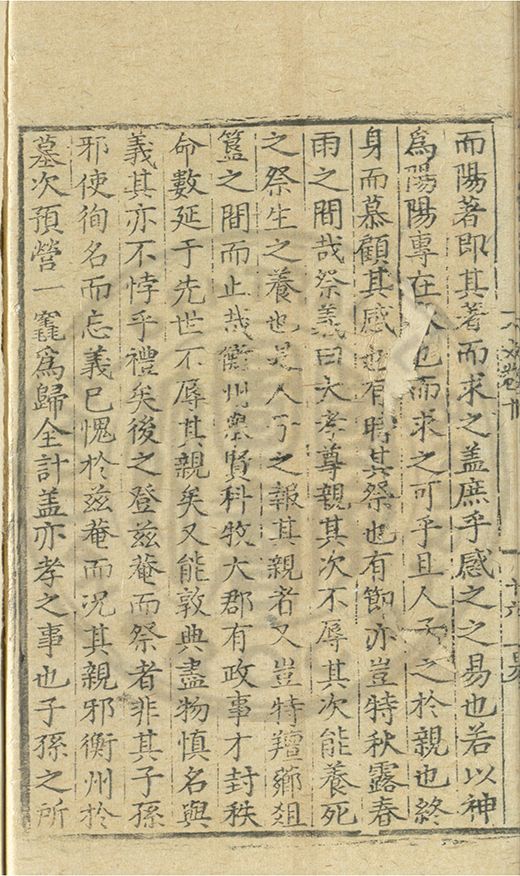 而陽著即其著而求之盖庶乎感之之易也若以神
爲陽陽專在也而求之可乎且人子之於親也終
身而慕顧其感也有時其祭也有節亦豈特秋露春
雨之間哉祭義曰大孝尊親其次不辱其次能養死
之祭生之養也是人子之報其親者又豈特羶薌俎
簋之間而止哉衡州賢科牧大郡有政事才封秩
命數延于先世不辱其親矣又能敦典盡物慎名與
義其亦不悖乎禮矣後之登兹菴而祭者非其子孫
邪使徇名而忘義已愧於兹菴而况其親邪衡州於
墓次預營一竁爲歸全計盖亦孝之事也子孫之所